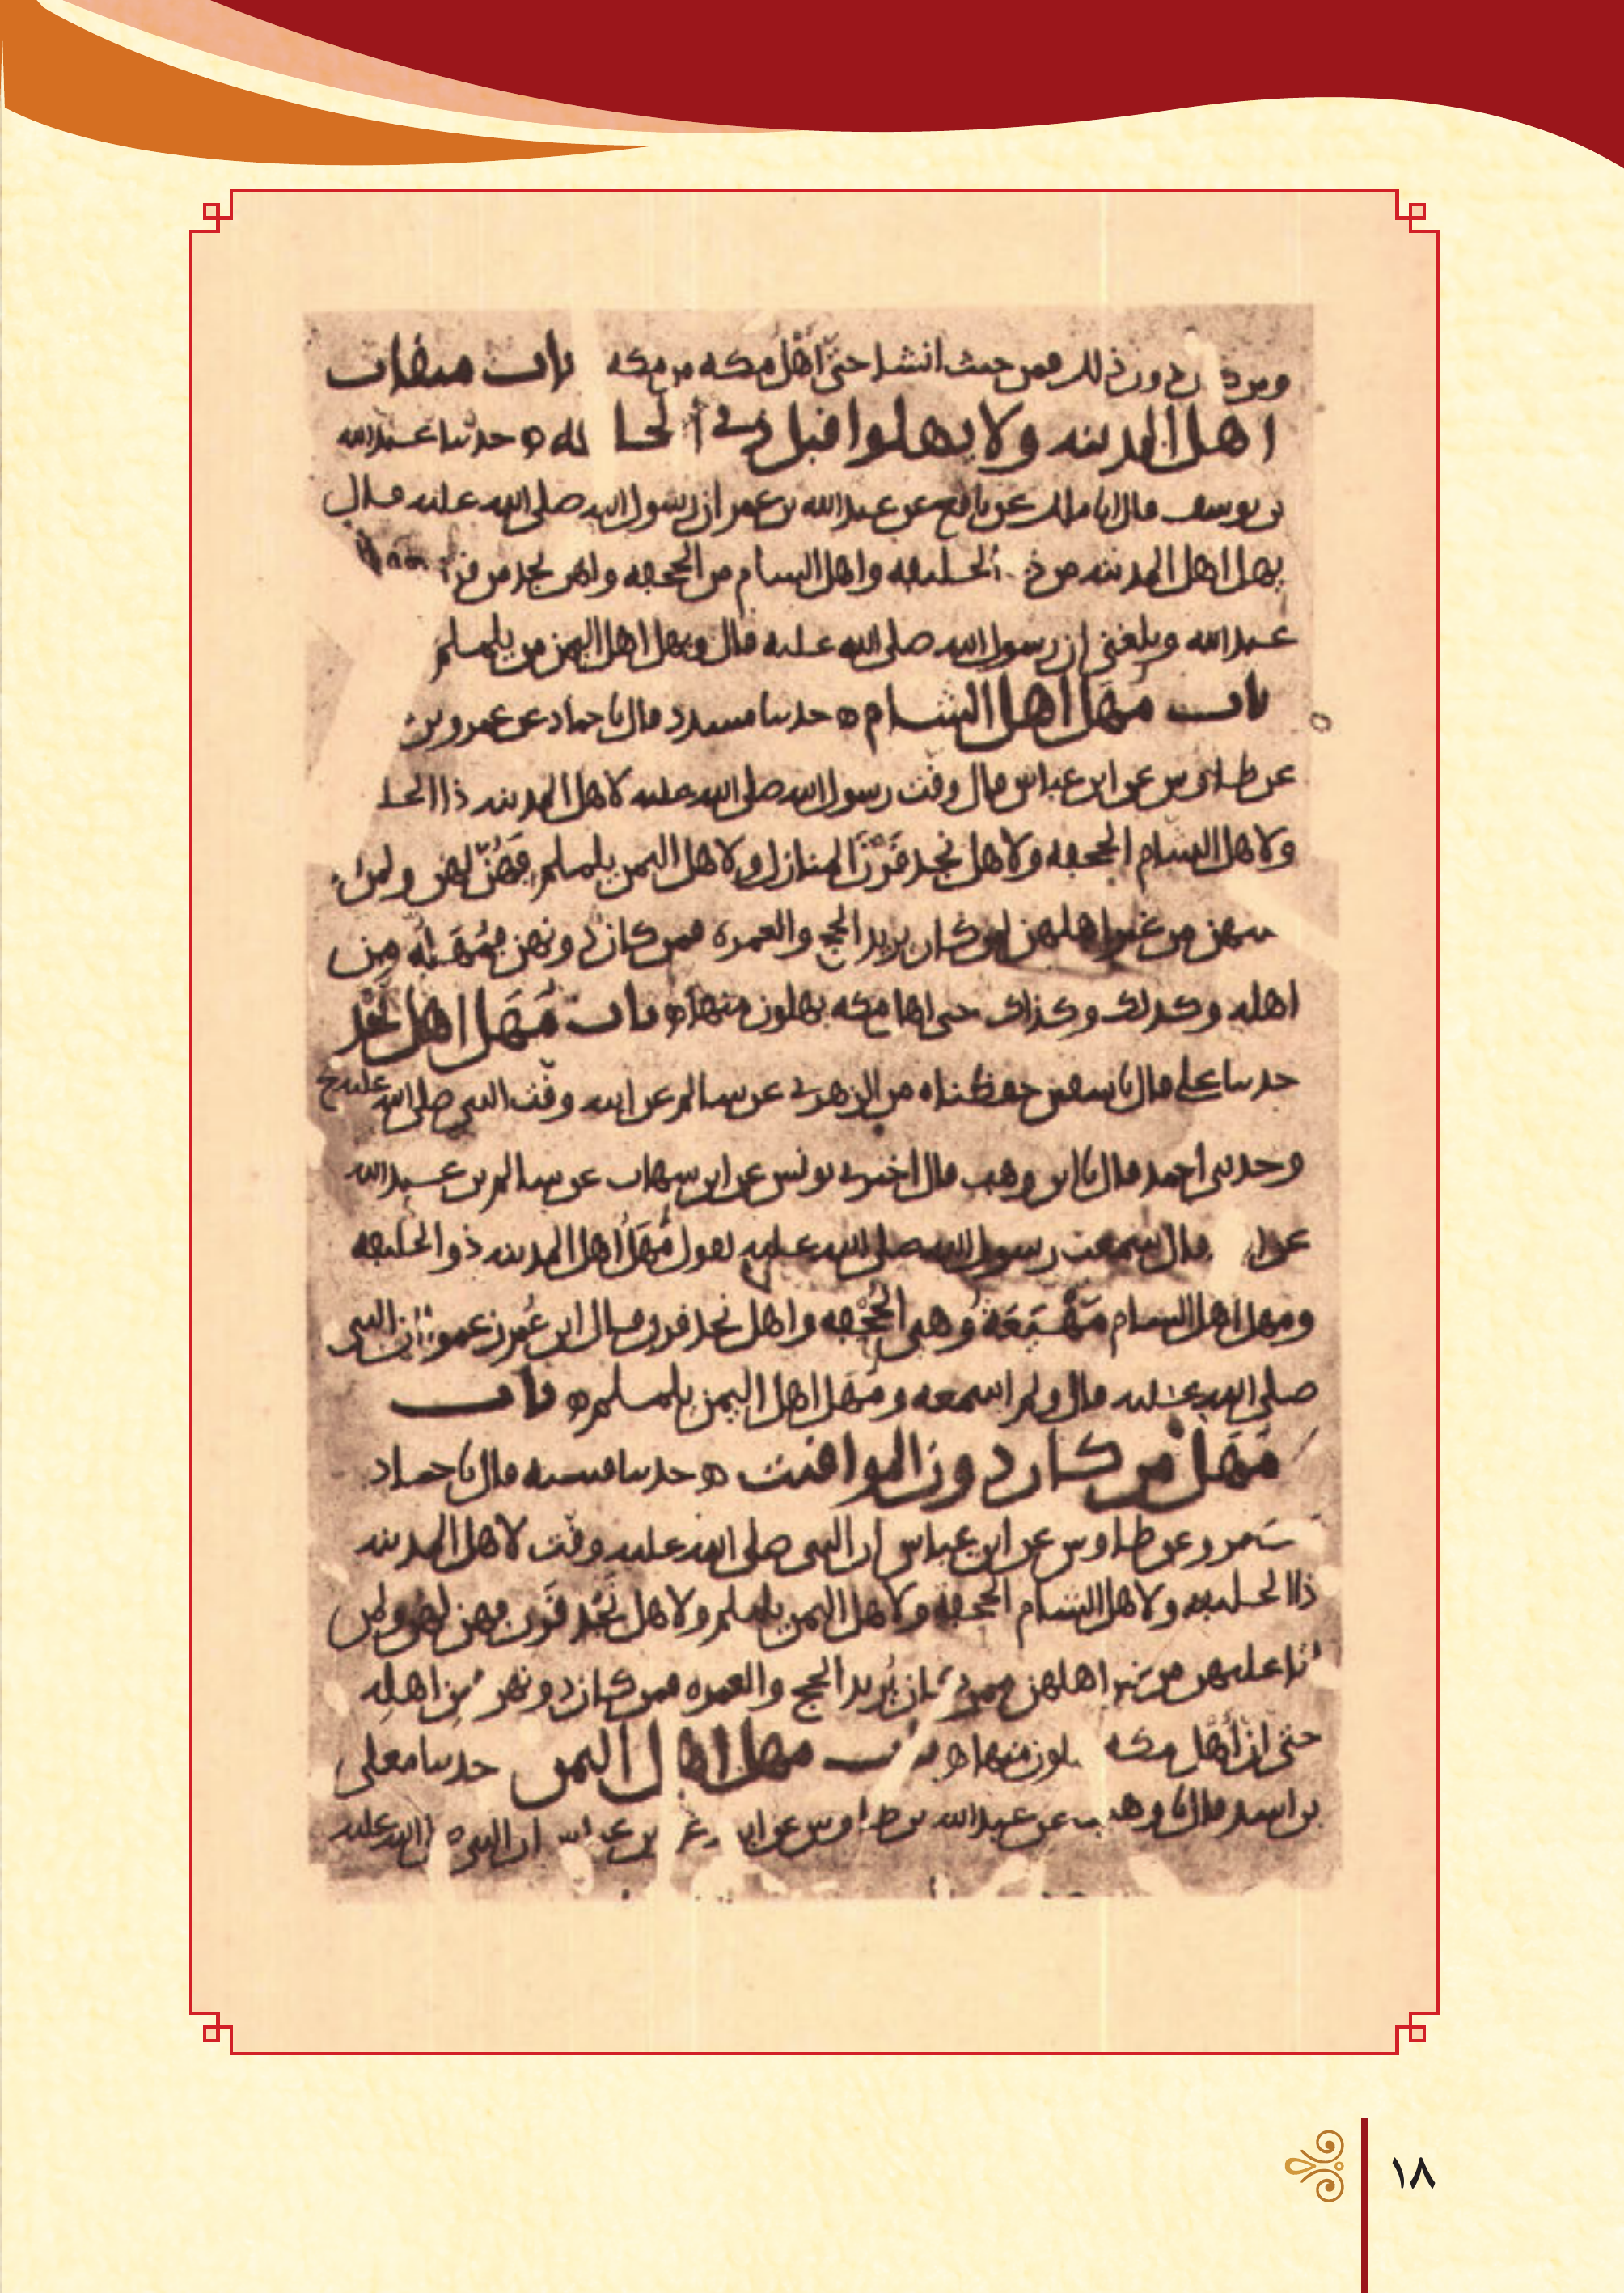 دون ذلك فمن حيث انشا حتى اهل مكه من مكه باب ميقات
اهل المدينه ولا يهلوا قبل ذي الحليفه حدثنا عبدالله
بن يوسف قال انا ملك عن نافع عن عبدالله بن عمر ان رسول الله صلى الله عليه قال
يهل اهل المدينه من ذي الحليفه واهل الشام من الجحفه واهل نجد من قرن
عبدالله وبلغني ان رسول الله صلى الله عليه قال ويهل اهل اليمن من يلملم
باب مهل اهل الشام حدثنا مسدد قال نا حماد عن عمرو بن
عن طاوس عن ابن عباس قال وقت رسول الله صلى الله عليه لاهل المدينه ذا الحليـ
ولاهل الشام الجحفه ولاهل نجد قَرْنَ المنازل ولاهل اليمن يلملم فهُنّ لهن ولمن
من غير اهلهن لمن كان يريد الحج والعمره فمن كان دونهن فمُهَلُّه من
اهله وكذلك وكذاك حتى اهل مكه يهلون منها باب مَهَل اهل نجد
حدثنا علي قال نا سفين حفظناه من الزهري عن سالم عن ابيه وقت النبي صلى الله عليه ح
وحدثني احمد قال نا ابن وهب قال اخبرني يونس عن ابن شهاب عن سالم بن عبدالله
عن قال سمعت رسول الله صلى الله عليه يقول مُهَلُّ اهل المدينه ذو الحليفه
ومهل اهل الشام مَهْيَعَةُ وهي الجُحْفه واهل نجد قرن قال ابن عُمر زعموا ان النبي
صلى الله عليه قال ولم اسمعه ومَهَل اهل اليمن يلملم باب
مَهَل من كان دون المواقيت حدثنا قتيبه قال نا حماد
عمرو عن طاوس عن ابن عباس ان النبي صلى الله عليه وقت لاهل المدينه
ذا الحليفه ولاهل الشام الجحفه ولاهل اليمن يلملم ولاهل نَجْد قَرن فهن لهن ولمن
عليهن من غير اهلهن ممن كان يُريد الحج والعمره فمن كان دونهن مِن اهلِهِ
حتى ان أهل مكه يهلون منها باب مهل اهل اليمن حدثنا معلى
بن اسد قال نا وهيب عن عبدالله بن طاوس عن ابيه عن بن عباس ان النبي صلى الله عليه
١٨